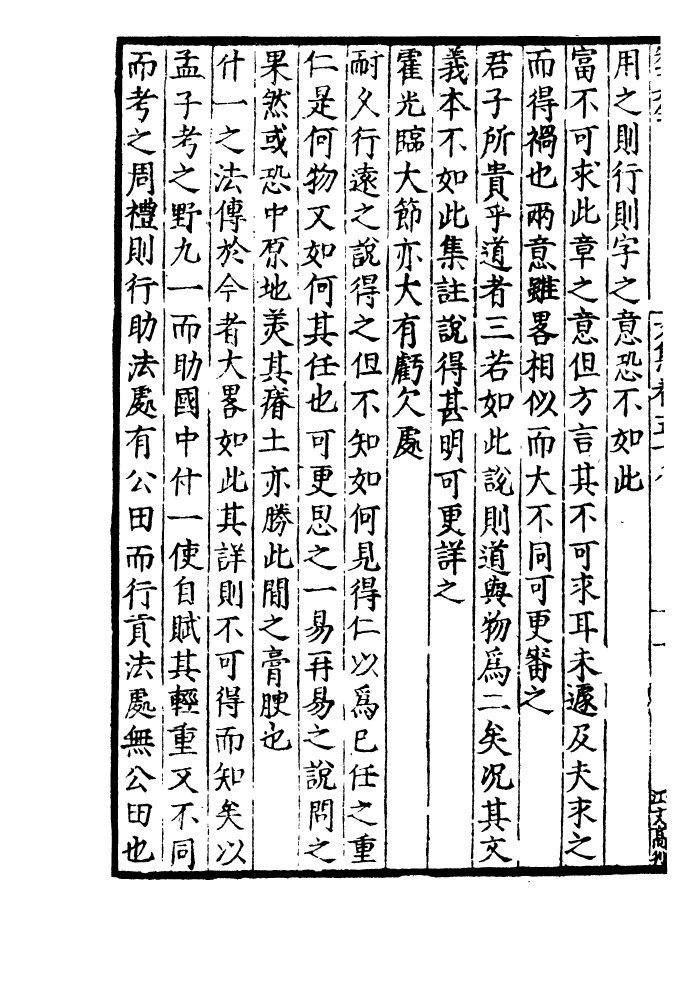 用之則行則字之意恐不如此
富不可求此章之意但方言其不可求耳未遽及夫求之
而得禍也兩意雖畧相似而大不同可更審之
君子所貴乎道者三若如此説則道與物爲二矣况其文
義本不如此集註説得甚明可更詳之
霍光臨大節亦大有虧欠處
耐久行逺之説得之但不知如何見得仁以爲已任之重
仁是何物又如何其任也可更思之一易再易之説問之
果然或恐中原地美其瘠土亦勝此間之膏腴也
什一之法傳於今者大畧如此其詳則不可得而知矣以
孟子考之野九一而助國中什一使自賦其輕重又不同
而考之周禮則行助法處有公田而行貢法處無公田也